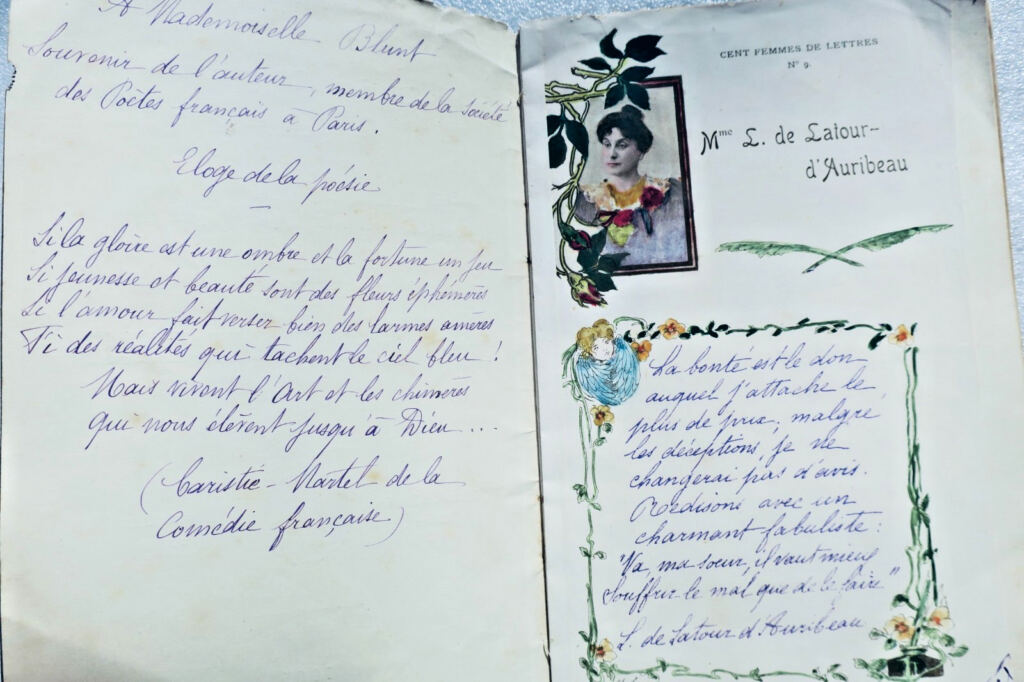 A Mademoiselle Blunt
Souvenir de l'auteur, membre de la Société
des Poètes français à Paris.
Eloge de la poésie
Si la gloire est une ombre et la fortune un jeu
Si jeunesse et beauté sont des fleurs éphémères
Si l'amour fait verser bien des larmes amères
Fi des réalités qui tachent le ciel bleu !
Mais vivent l'Art et les chimères
qui nous élèvent jusqu'à Dieu ...
(Caristie-Martel de la
Comédie française)
CENT FEMMES DE LETTRES
N° 9.
Mme L. de Latour-
d'Auribeau
La bonté est le don
auquel j'attache le
plus de prix, malgré
les déceptions, je ne
changerai pas d'avis.
Redisons avec un
charmant fabuliste :
"Va, ma soeur, il vaut mieux
souffrir le mal que de le faire"
L. de Latour d'Auribeau